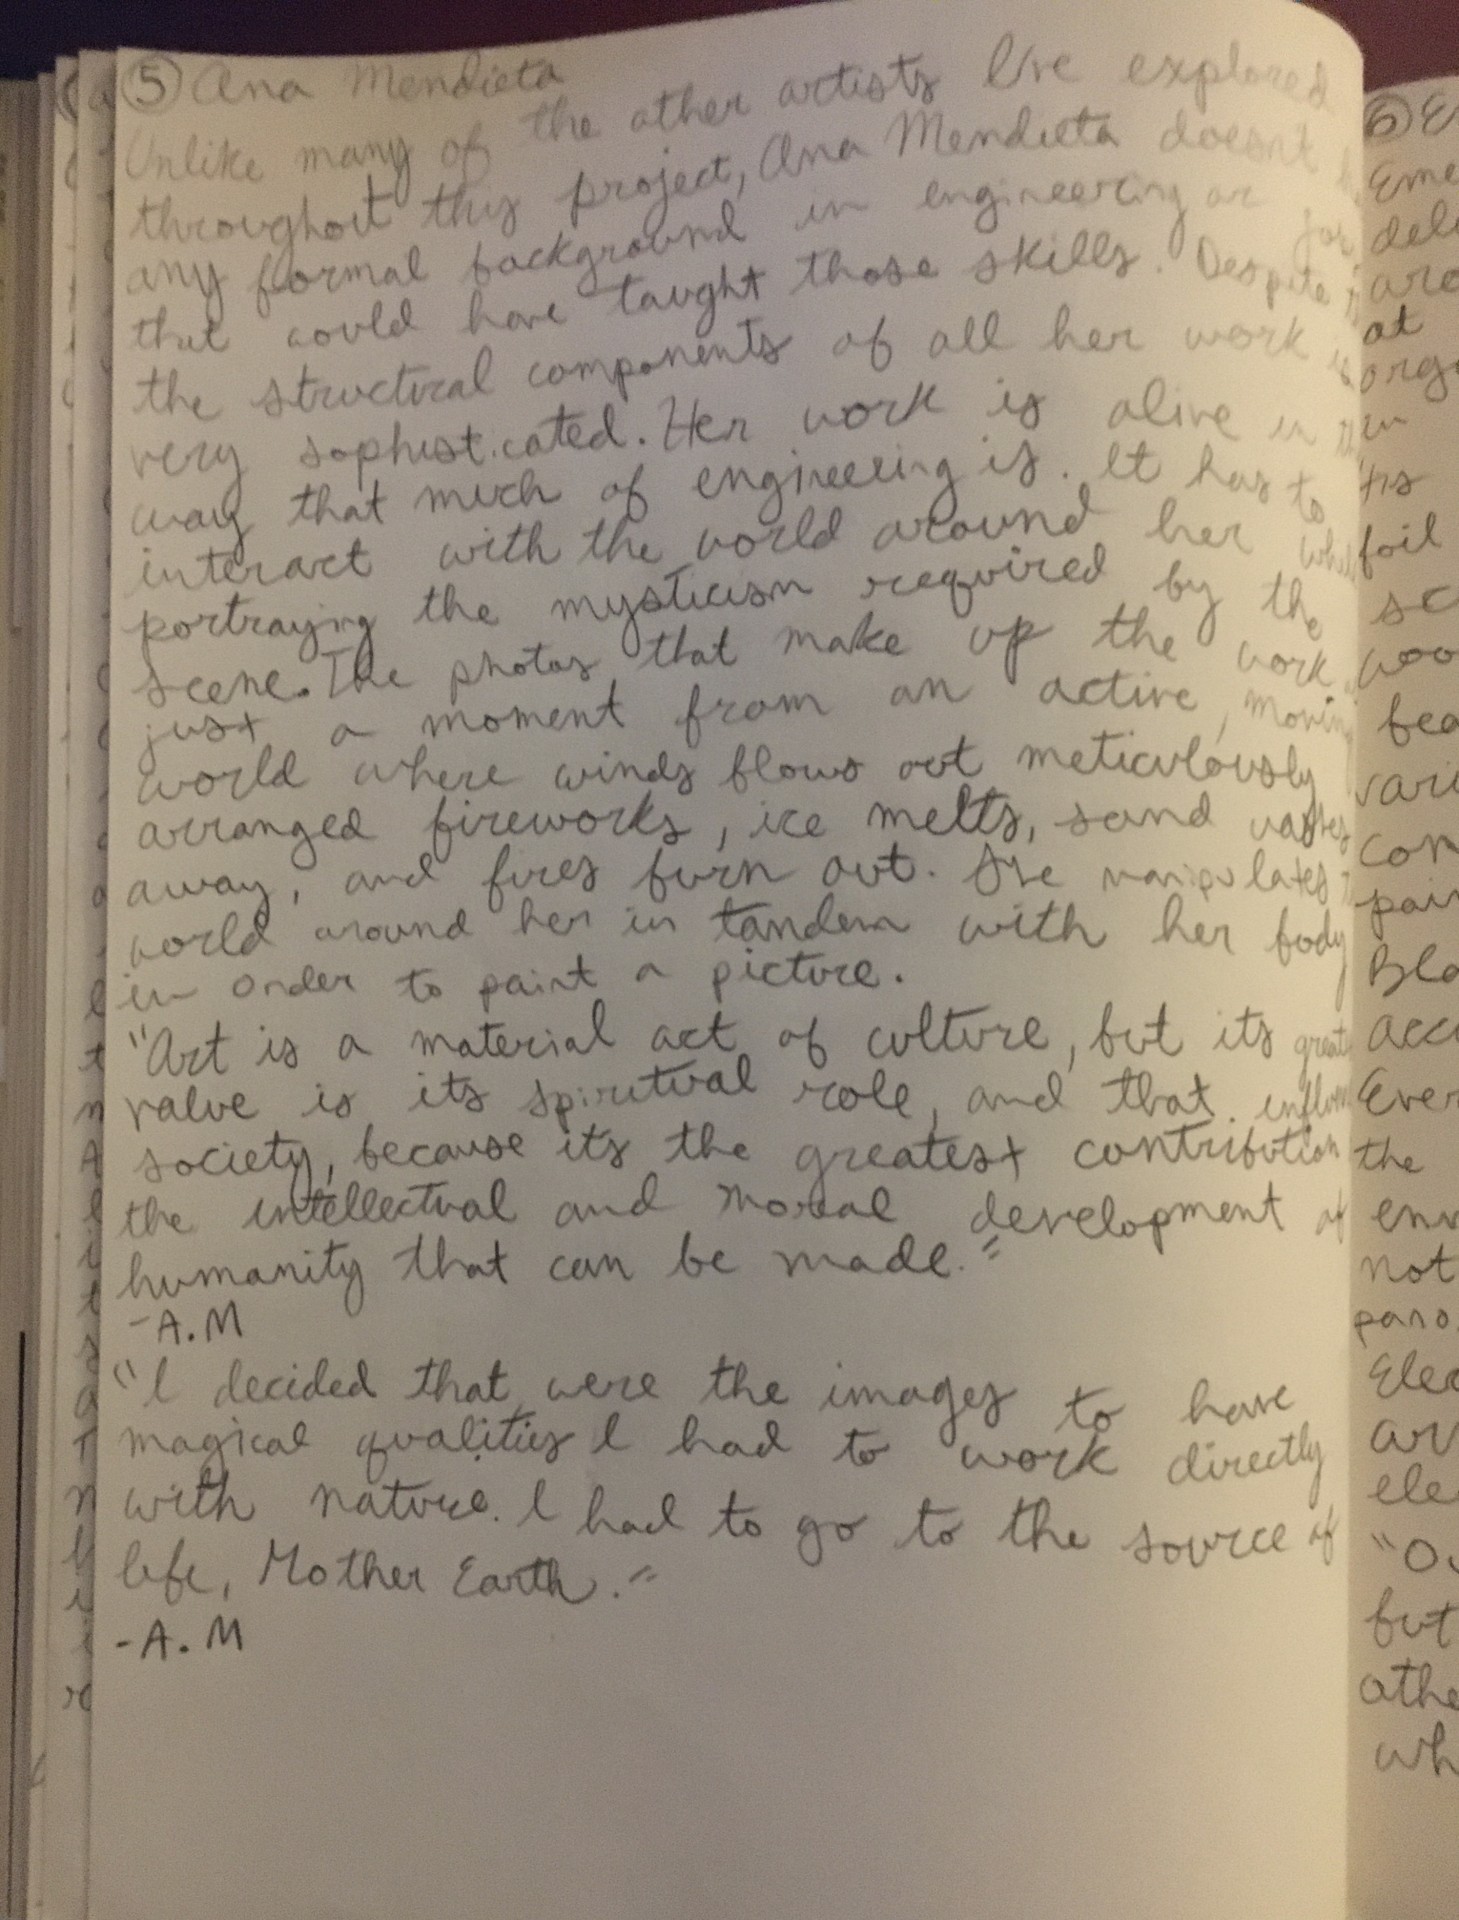 ⑤ Ana Mendieta
Unlike many of the other artists I've explored
throughout this project, Ana Mendieta doesn't
any formal background in engineering or
that could have taught those skills. Despite
the structural components of all her work is
very sophisticated. Her work is alive in the
way that much of engineering is. It has to
interact with the world around her while
portraying the mysticism required by the
scene. The photos that make up the work
just a moment from an active, moving
world where winds blows out meticulously
arranged fireworks, ice melts, sand washes
away, and fires burn out. She manipulates
world around her in tandem with her body
in order to paint a picture.
"Art is a material act of culture, but its great
value is its spiritual role, and that
society, because its the greatest contribution
the intellectual and moral development of
humanity that can be made."
-A.M
"I decided that were the images to have
magical qualities I had to work directly
with nature. I had to go to the source of
life, Mother Earth."
-A.M
⑥ E
Eme
deli
are
at
orga
in
his
foil
sc
woo
bea
vari
com
pain
Bla
acc
Ever
the
env
not
pano
Elec
ar
ele
"O
but
othe
wh